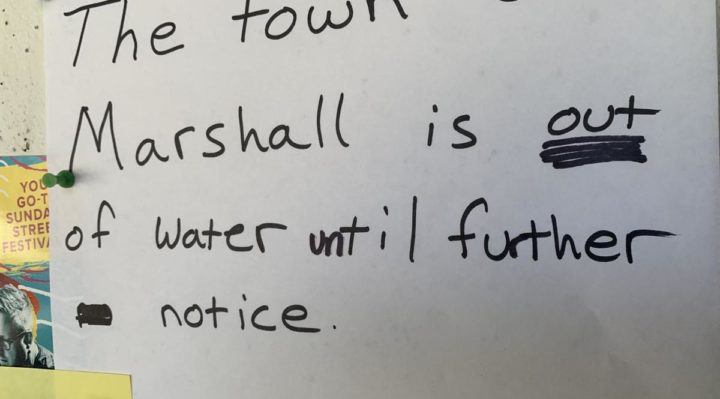 The town
Marshall is out
of water until further
notice.
YOU
GO-T
SUNDA
STREE
FESTIVA